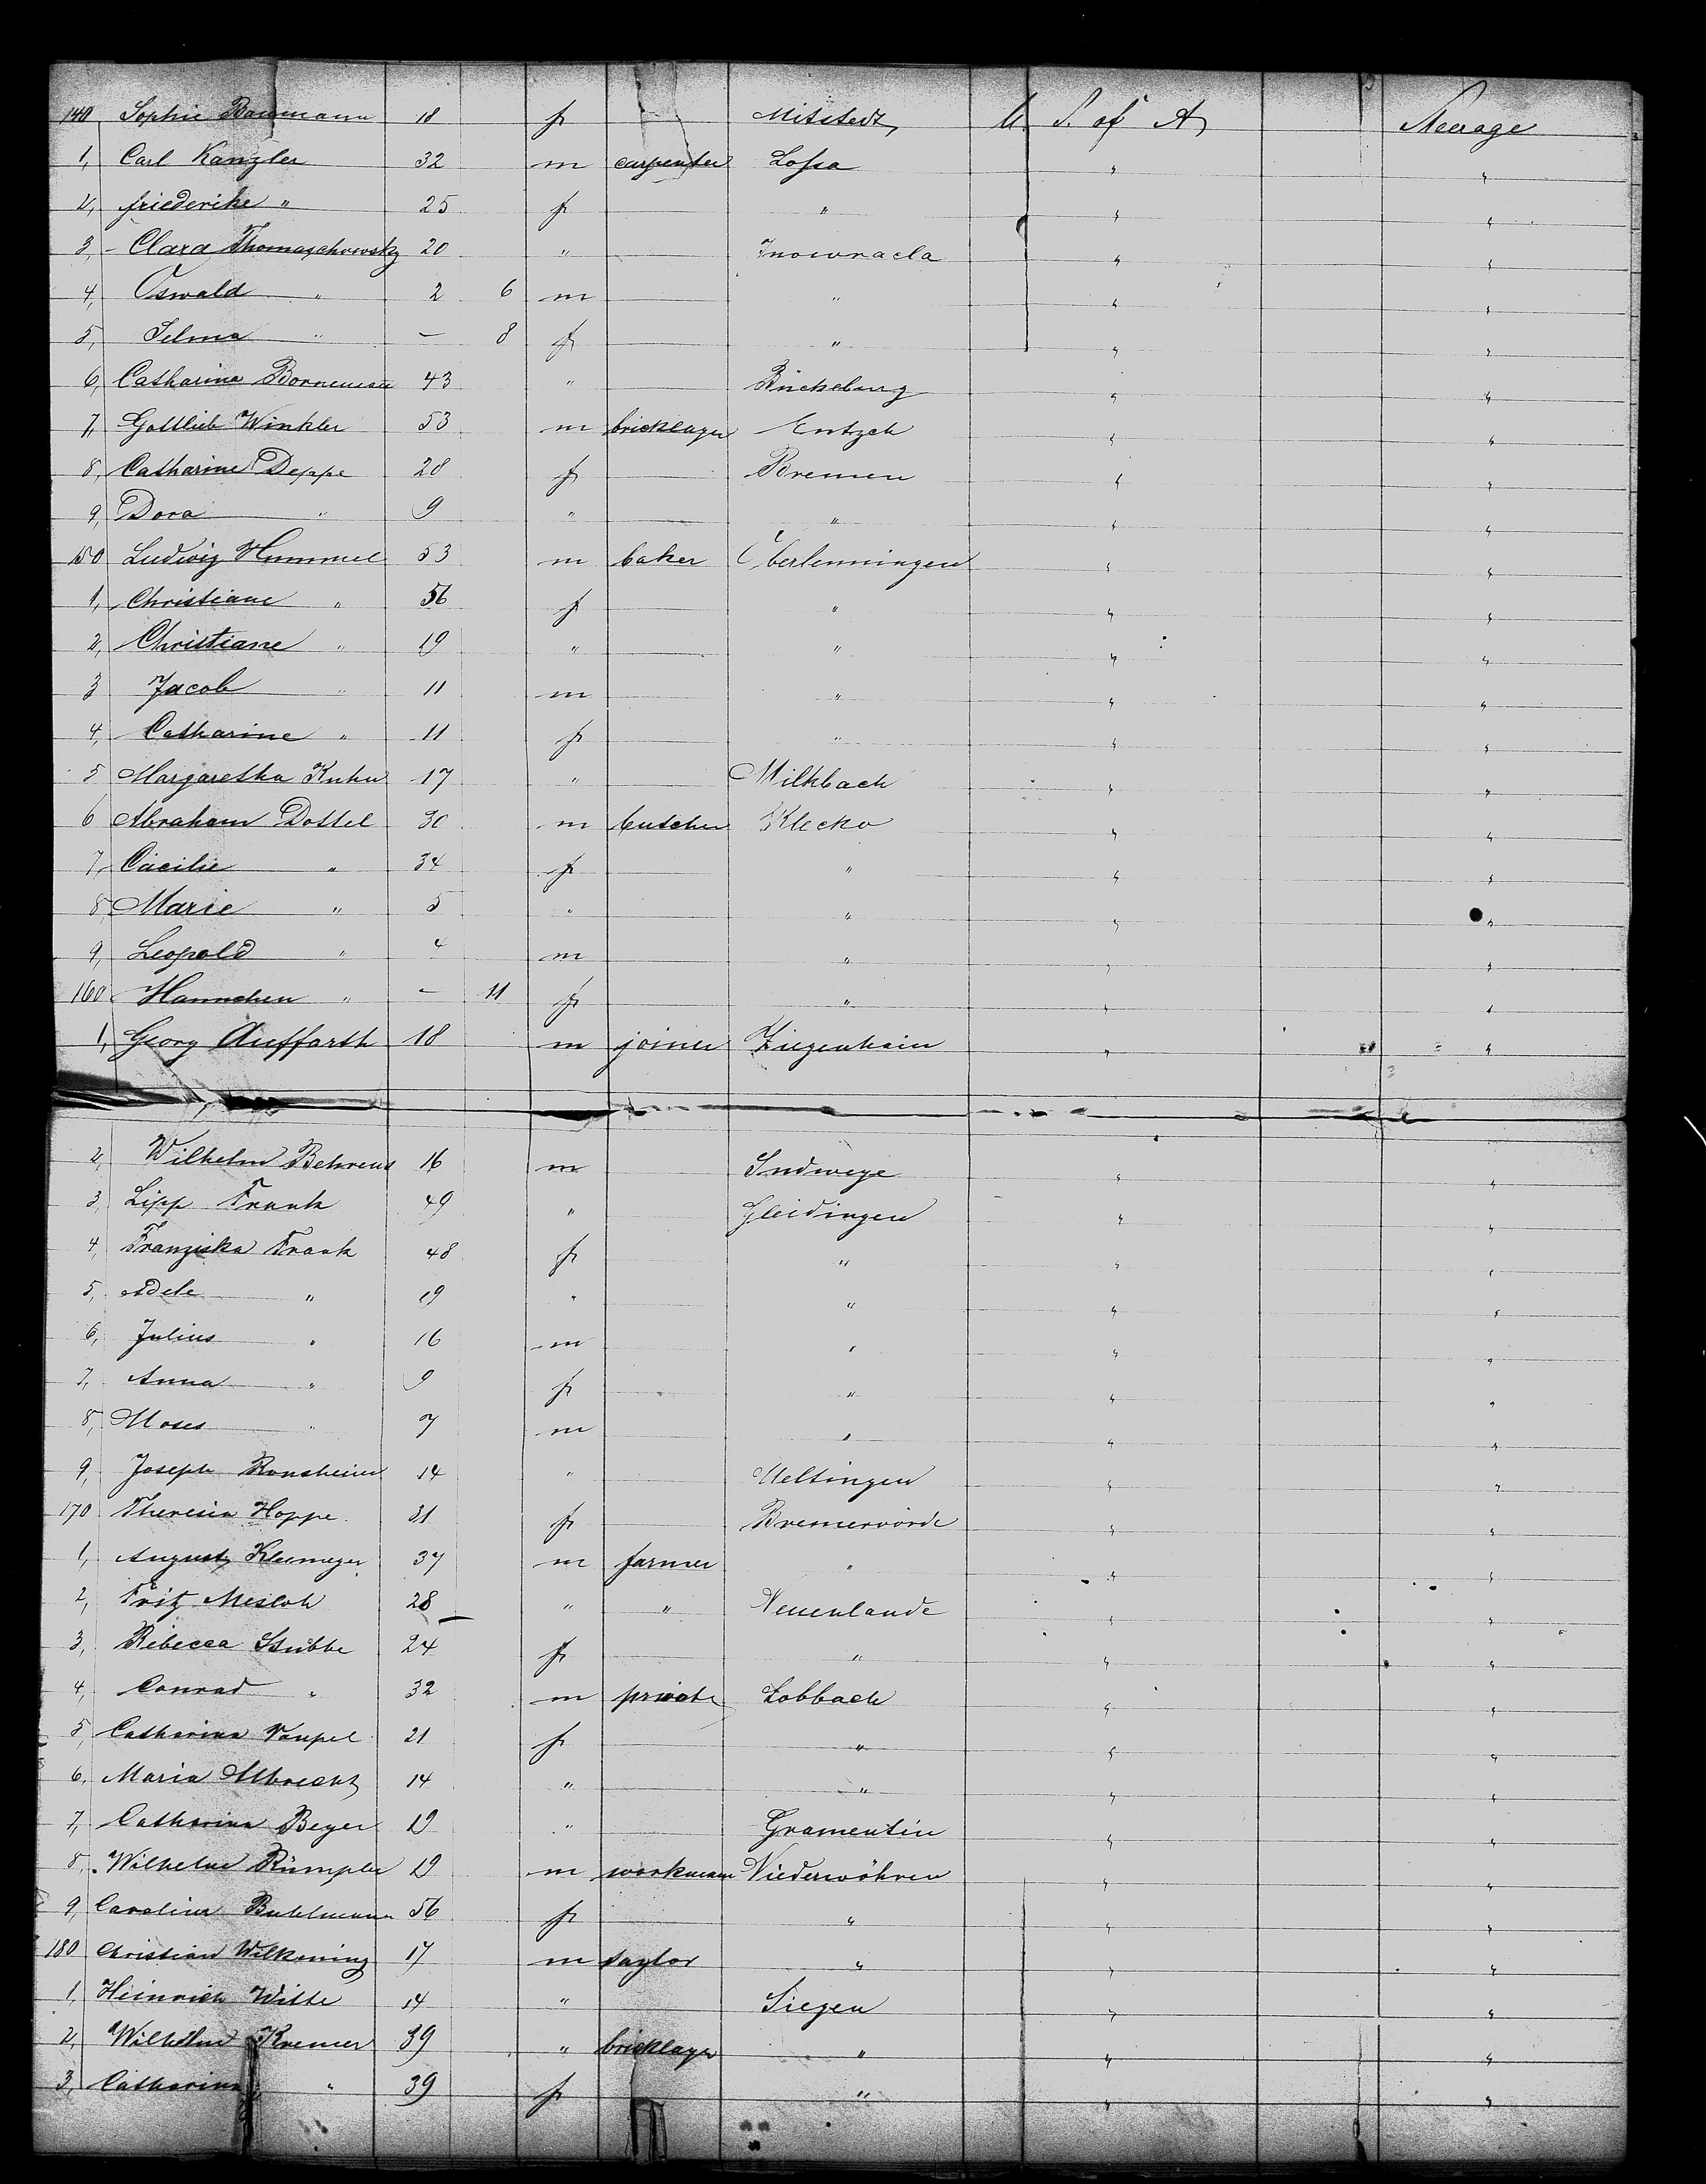 140 Sophie Baumann 18 f Mitstedt, U. S. of A, Steerage
1, Carl Kanzler 32 m carpenter Lossa " "
2, friederike " 25 f " " "
3, Clara Thomaschowsky 20 " Inowracla " "
4, Oswald " 2 6 m " " "
5, Selma " — 8 f " " "
6, Catharina Bornemann 43 " Bückeburg " "
7, Gottlieb Winkler 53 m bricklayer Entzch " "
8, Catharine Deppe 28 f Bremen " "
9, Dora " 9 " " " "
150 Ludwig Hummel 53 m baker Oberlenningen " "
1, Christiane " 56 f " " "
2, Christiane " 19 " " " "
3 Jacob " 11 m " " "
4, Catharine " 11 f " " "
5 Margaretha Kuhn 17 " Milkbach " "
6 Abraham Dottel 30 m butcher Klecko " "
7, Cäcilie " 34 f " " "
8, Marie " 5 " " " "
9, Leopold " 4 m " " "
160 Hannchen " — 11 f " " "
1, Georg Auffarth 18 m joiner Ziegenhain " "
2, Wilhelm Behrens 16 m Sudwege " "
3, Lipp Frank 49 " Gleidingen " "
4, Franziska Frank 48 f " " "
5, Adele " 19 " " " "
6, Julius " 16 m " " "
7, Anna " 9 f " " "
8, Moses " 7 m " " "
9, Joseph Ronsheim 14 " Ueltingen " "
170 Theresia Hoppe 31 f Bremervörde " "
1, August Klermeyer 37 m farmer " " "
2, Fritz Mesloh 28 " " Neuenlande " "
3, Rebecca Stubbe 24 f " " "
4, Conrad " 32 m private Lobbach " "
5, Catharina Vaupel 21 f " " "
6, Maria Albrecht 14 " " " "
7, Catharina Beyer 19 " Gramentin " "
8, Wilhelm Rümpler 19 m workmann Niederwöhren " "
9, Caroline Buhlmann 56 f " " "
180 Christian Wilkening 17 m taylor " " "
1, Heinrich Witte 14 " Siegen " "
2, Wilhelm Kremer 39 " bricklayer " " "
3, Catharina " 39 f " " "